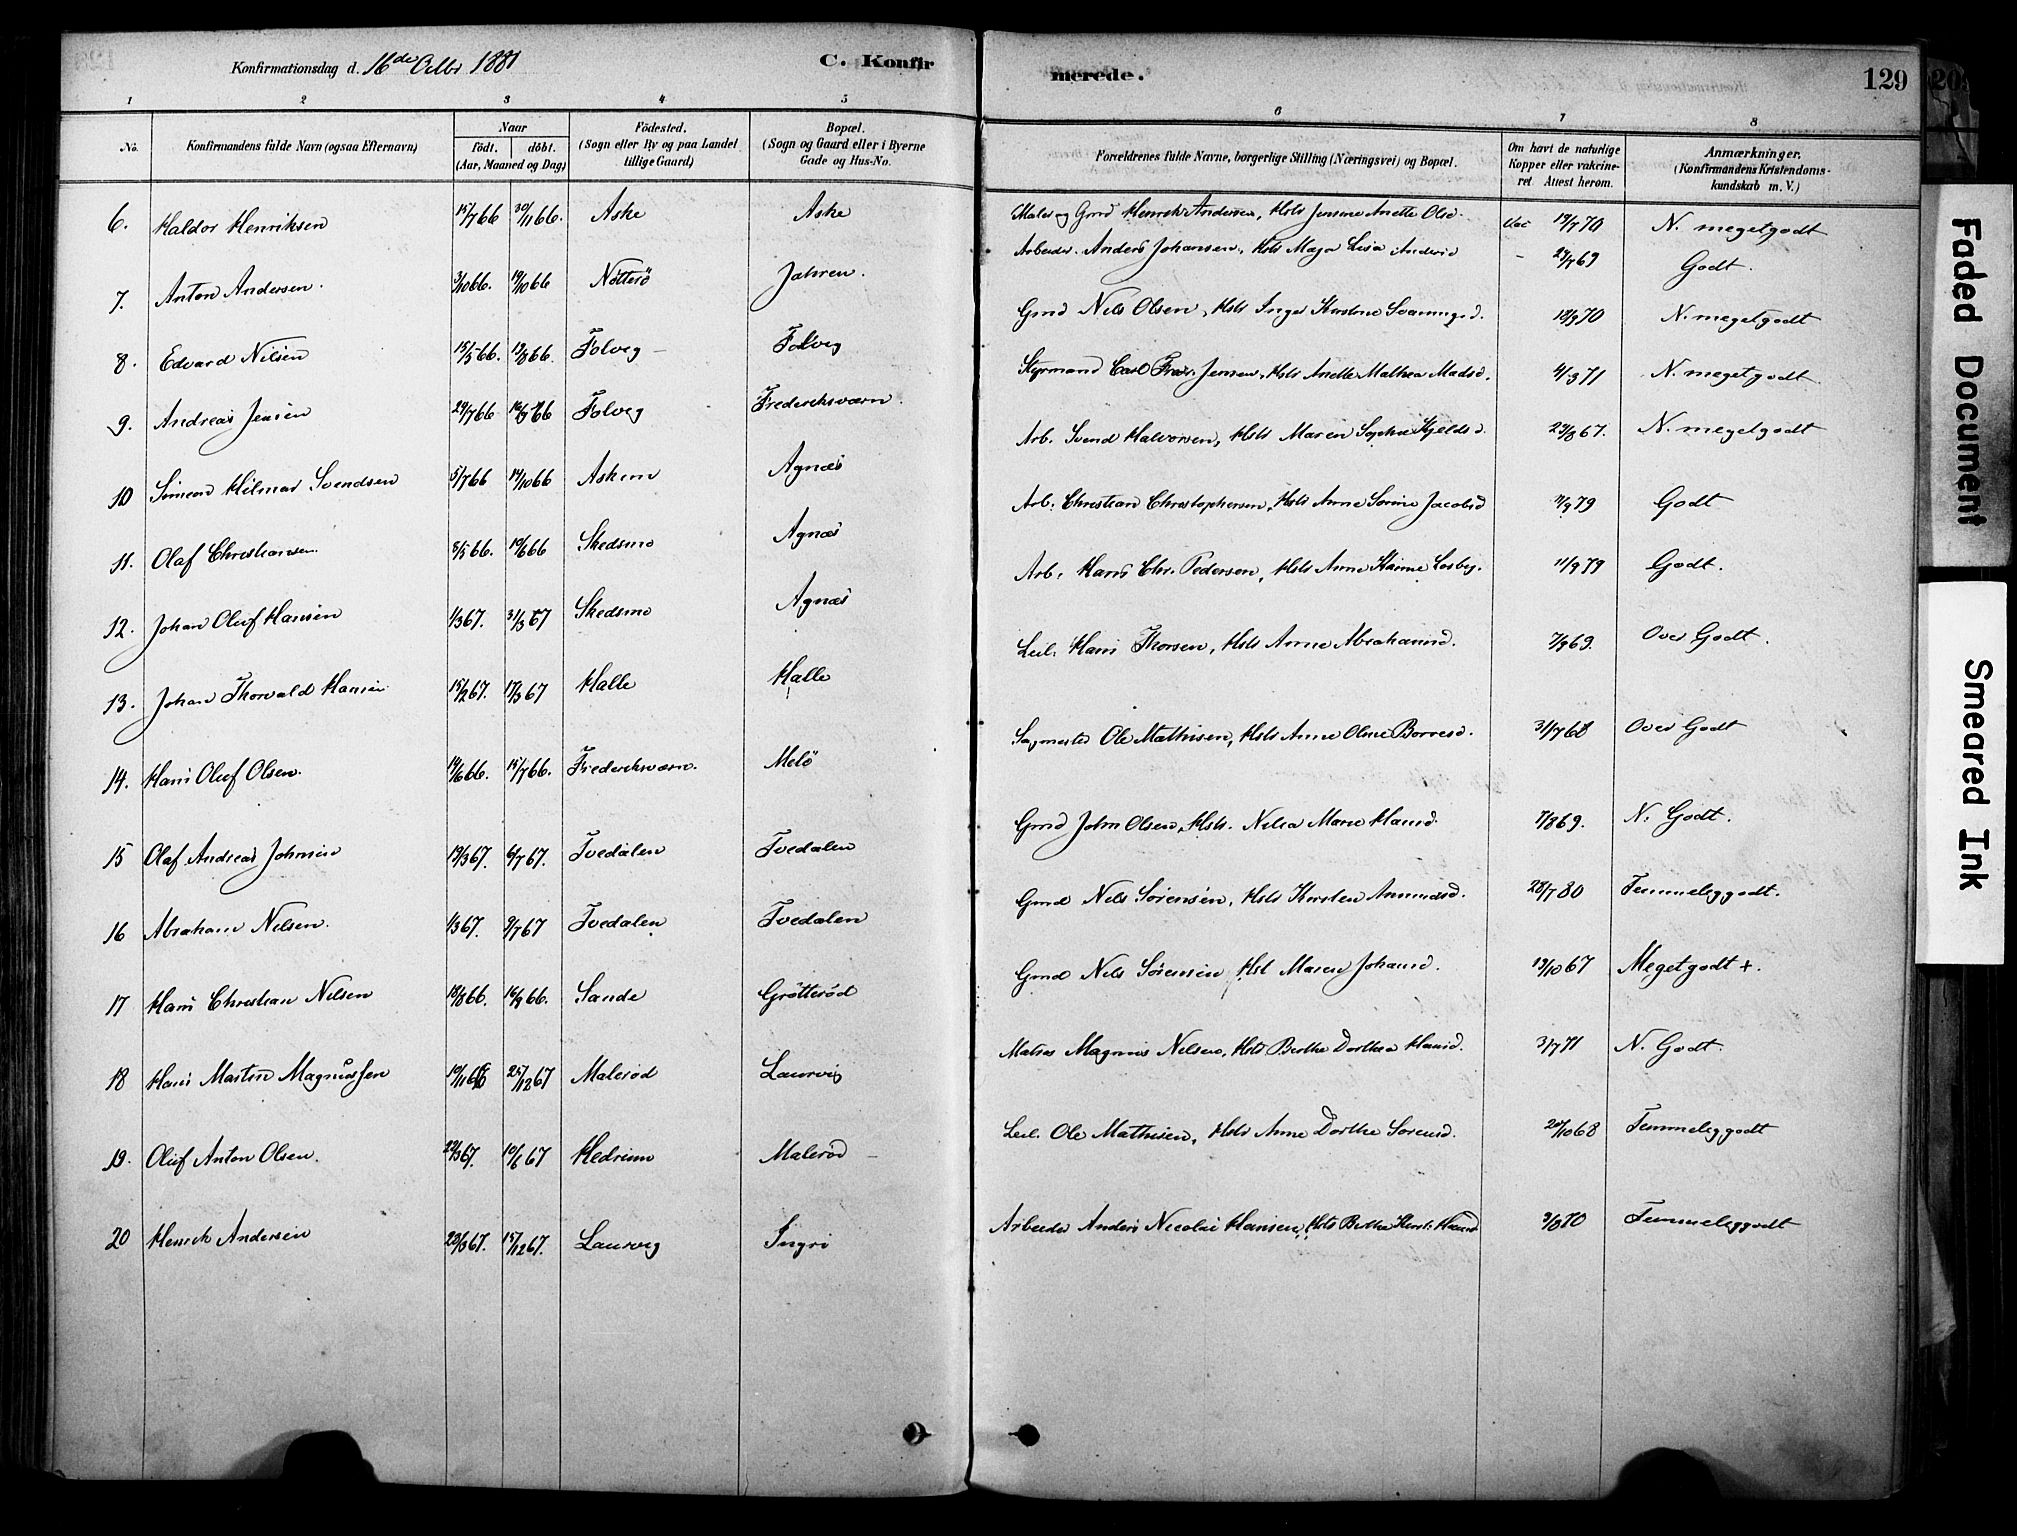 Konfirmationsdag d. 16de Octbr 1881
C. Konfirmerede.
129
1 2 3 4 5 6 7 8
No. Konfirmandens fulde Navn (ogsaa Efternavn) Naar födt. döbt. (Aar, Maaned og Dag) Födested. (Sogn eller By og paa Landet tillige Gaard) Bopæl. (Sogn og Gaard eller i Byerne Gade og Hus-No. Forældrenes fulde Navne, borgerlige Stilling (Næringsvei) og Bopæl. Om havt de naturlige Kopper eller vakcineret Attest herom. Anmærkninger. (Konfirmandens Kristendomskundskab m. V.)
6. Haldor Henriksen 15/7 66 30/11 66. Aske Aske Maler og Gmd Henrik Andersen, Hstr Jensine Anette Olsd. Vac 19/7 70 N. megetgodt
7. Anton Andersen. 3/10 66. 19/10 66 Nötterö Jahren. Arbeider. Anders Johansen, Hstr Maja Lisa Andersd - 27/7 69 Godt.
8. Edvard Nilsen 15/5 66. 19/8 66. Tolveg - Tolveg Gmd Nels Olsen, Hstr Inger Kirstine 18/9 70 N. megetgodt
9. Andreas Jensen 29/7 66 16/9 66 Tolveg Frederiksværn. Styrmand Carl Fredr. Jensen, Hstr Anette Mathea Madsd. 4/3 71 N. megetgodt.
10 Simeon Hilmar Svendsen 5/7 66 14/10 66 Askem Agnæs Arb. Svend Halvorsen, Hstr Maren Sophie Kjeldsd. 29/8 67. N. megetgodt
11. Olaf Christiansen. 8/5 66. 10/6 66 Skedsmo Agnæs Arb: Christian Christophersen, Hstr Anne Sörine Jacobsd 11/9 79 Godt
12. Johan Oluf Hansen 1/3 67. 31/3 67 Skedsmo Agnæs Arb: Hans Chr. Pedersen, Hstr Anne Losby. 11/9 79 Godt.
13. Johan Thorvald Hansen 15/2 67. 17/3 67 Halle Halle Leil. Hans Thorsen, Hstr Anne Abrahamsd. 7/9 69. Over Godt.
14. Hans Oluf Olsen. 14/6 66. 15/7 66. Frederiksværn. Melö Sagmester Ole Mathisen, Hstr Anne Oline Borresd. 31/7 68 Over Godt
15 Olaf Andreas Johnsen 19/3 67. 6/7 67. Tvedalen Tvedalen Gmd John Olsen, Hstr. Nilia Marie Hansd. 7/8 69. N. Godt.
16 Abraham Nilsen. 1/3 67. 9/7 67 Tvedalen Tvedalen Gmd Nels Sörensen, Hstr Kirsten Ammundsd. 28/7 80 Temmeliggodt.
17 Hans Christian Nilsen 18/8 66. 16/9 66. Sande Gröttеröd Gmd Nels Sörensen, Hst Maren Johansd. 13/10 67 Megetgodt +.
18 Hans Martin Magnussen 19/11 66 25/12 67 Maleröd Laurvig Matros Magnus Nilsen, Hstr Berthe Dorthea Hansd. 3/7 71 N. Godt.
19. Oluf Anton Olsen. 22/3 67. 10/6 67 Hedrum Maleröd - Leil. Ole Mathisen, Hstr Anne Dorthe Sörensd. 20/10 68 Temmeliggodt
20 Henrik Andersen 23/3 67. 15/12 67. Laurvig Ingri Arbeider Anders Nicolai Hansen, Hstr Berthe Kirst: Hansd 3/8 70 Temmeliggodt
Faded Document
Smeared Ink